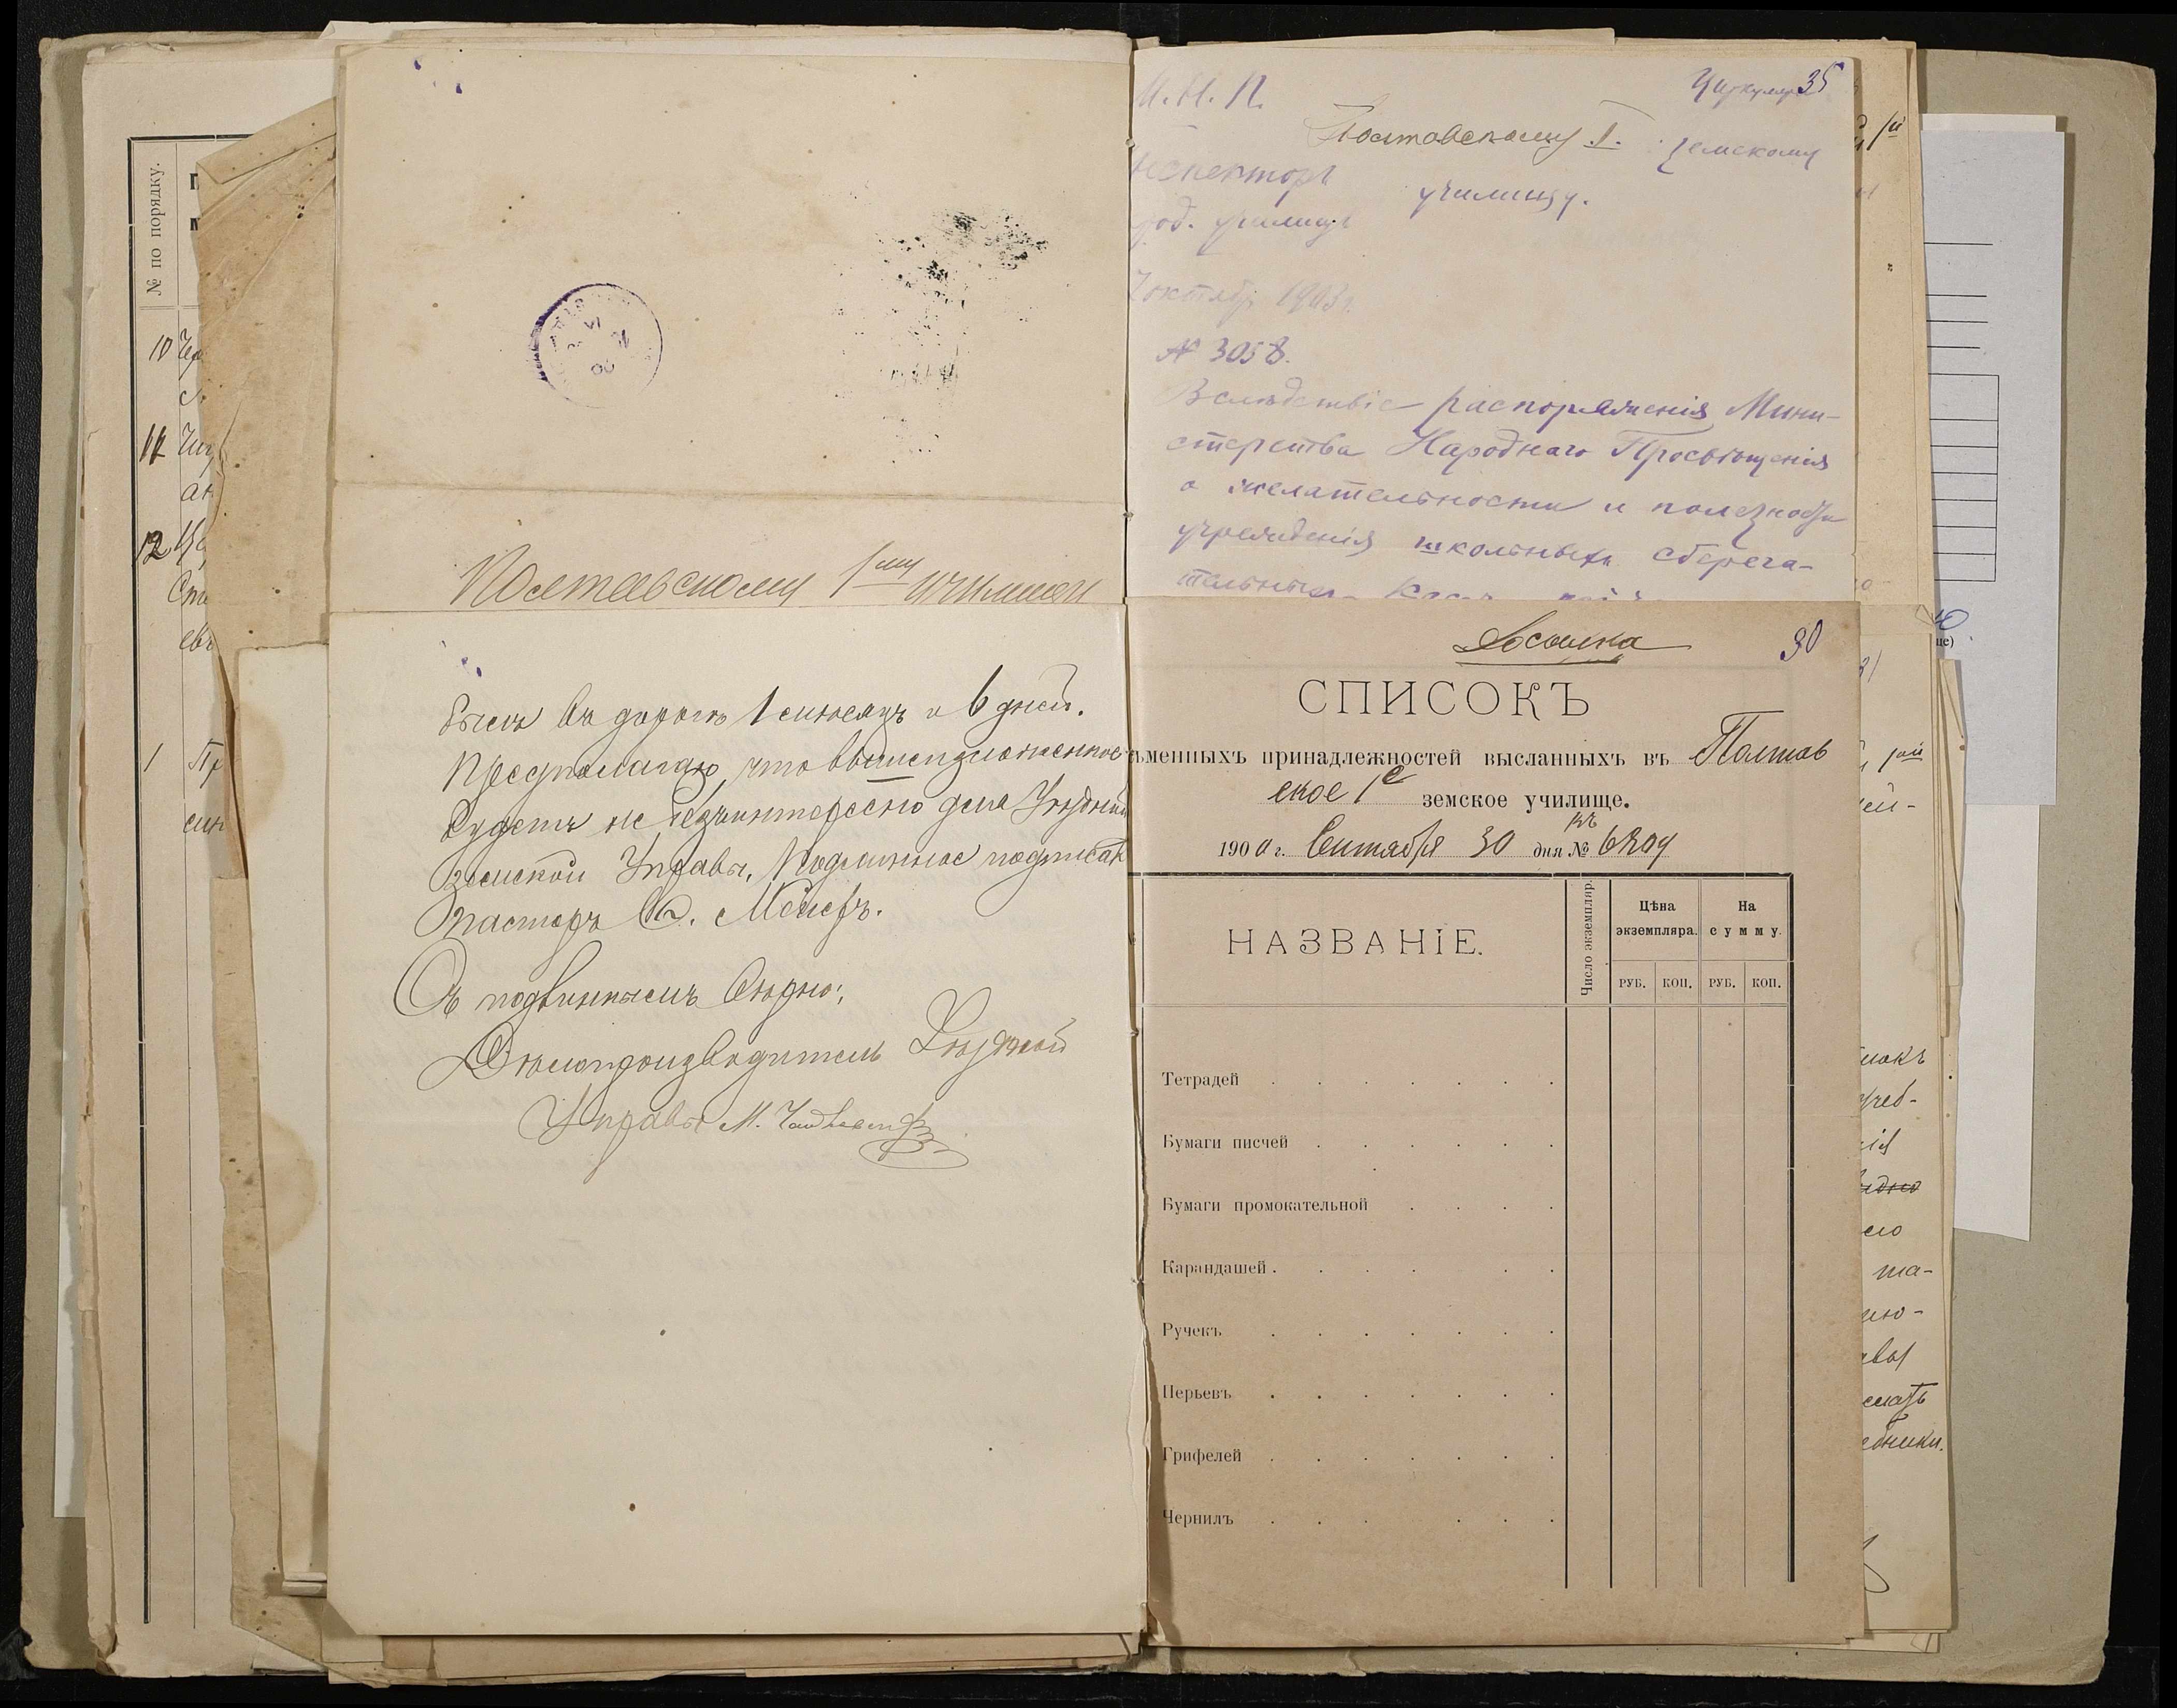 № по порядку.
10
11
12
1
Полтавскому 1му училищу
былъ въ дорогѣ 1 мѣсяцъ и 6 дней.
Предполагаю, что вышеизложенное
будетъ не безъинтересно для Уѣздной
Земской Управы. Подлинное подписалъ
Пастырь Мейеръ.
Съ подлиннымъ вѣрно:
Дѣлопроизводитель Уѣздной
Управы М.
М. Н. П.
Циркуляръ 35
Полтавскому I. земскому
училищу.
Инспекторъ
нар. училищъ
октября 1903 г.
№ 3058.
Вслѣдствіе распоряженія Мини-
стерства Народнаго Просвѣщенія
о желательности и полезности
учрежденія школьныхъ сберега-
тельныхъ кассъ
Посылка
30
СПИСОКЪ
ьменныхъ принадлежностей высланныхъ въ Полтав
ское 1е земское училище.
1900 г. Сентября 30 дня къ № 6209
НАЗВАНІЕ.
Число экземпляр.
Цѣна экземпляра.
На сумму.
РУБ. КОП. РУБ. КОП.
Тетрадей
Бумаги писчей
Бумаги промокательной
Карандашей
Ручекъ
Перьевъ
Грифелей
Чернилъ